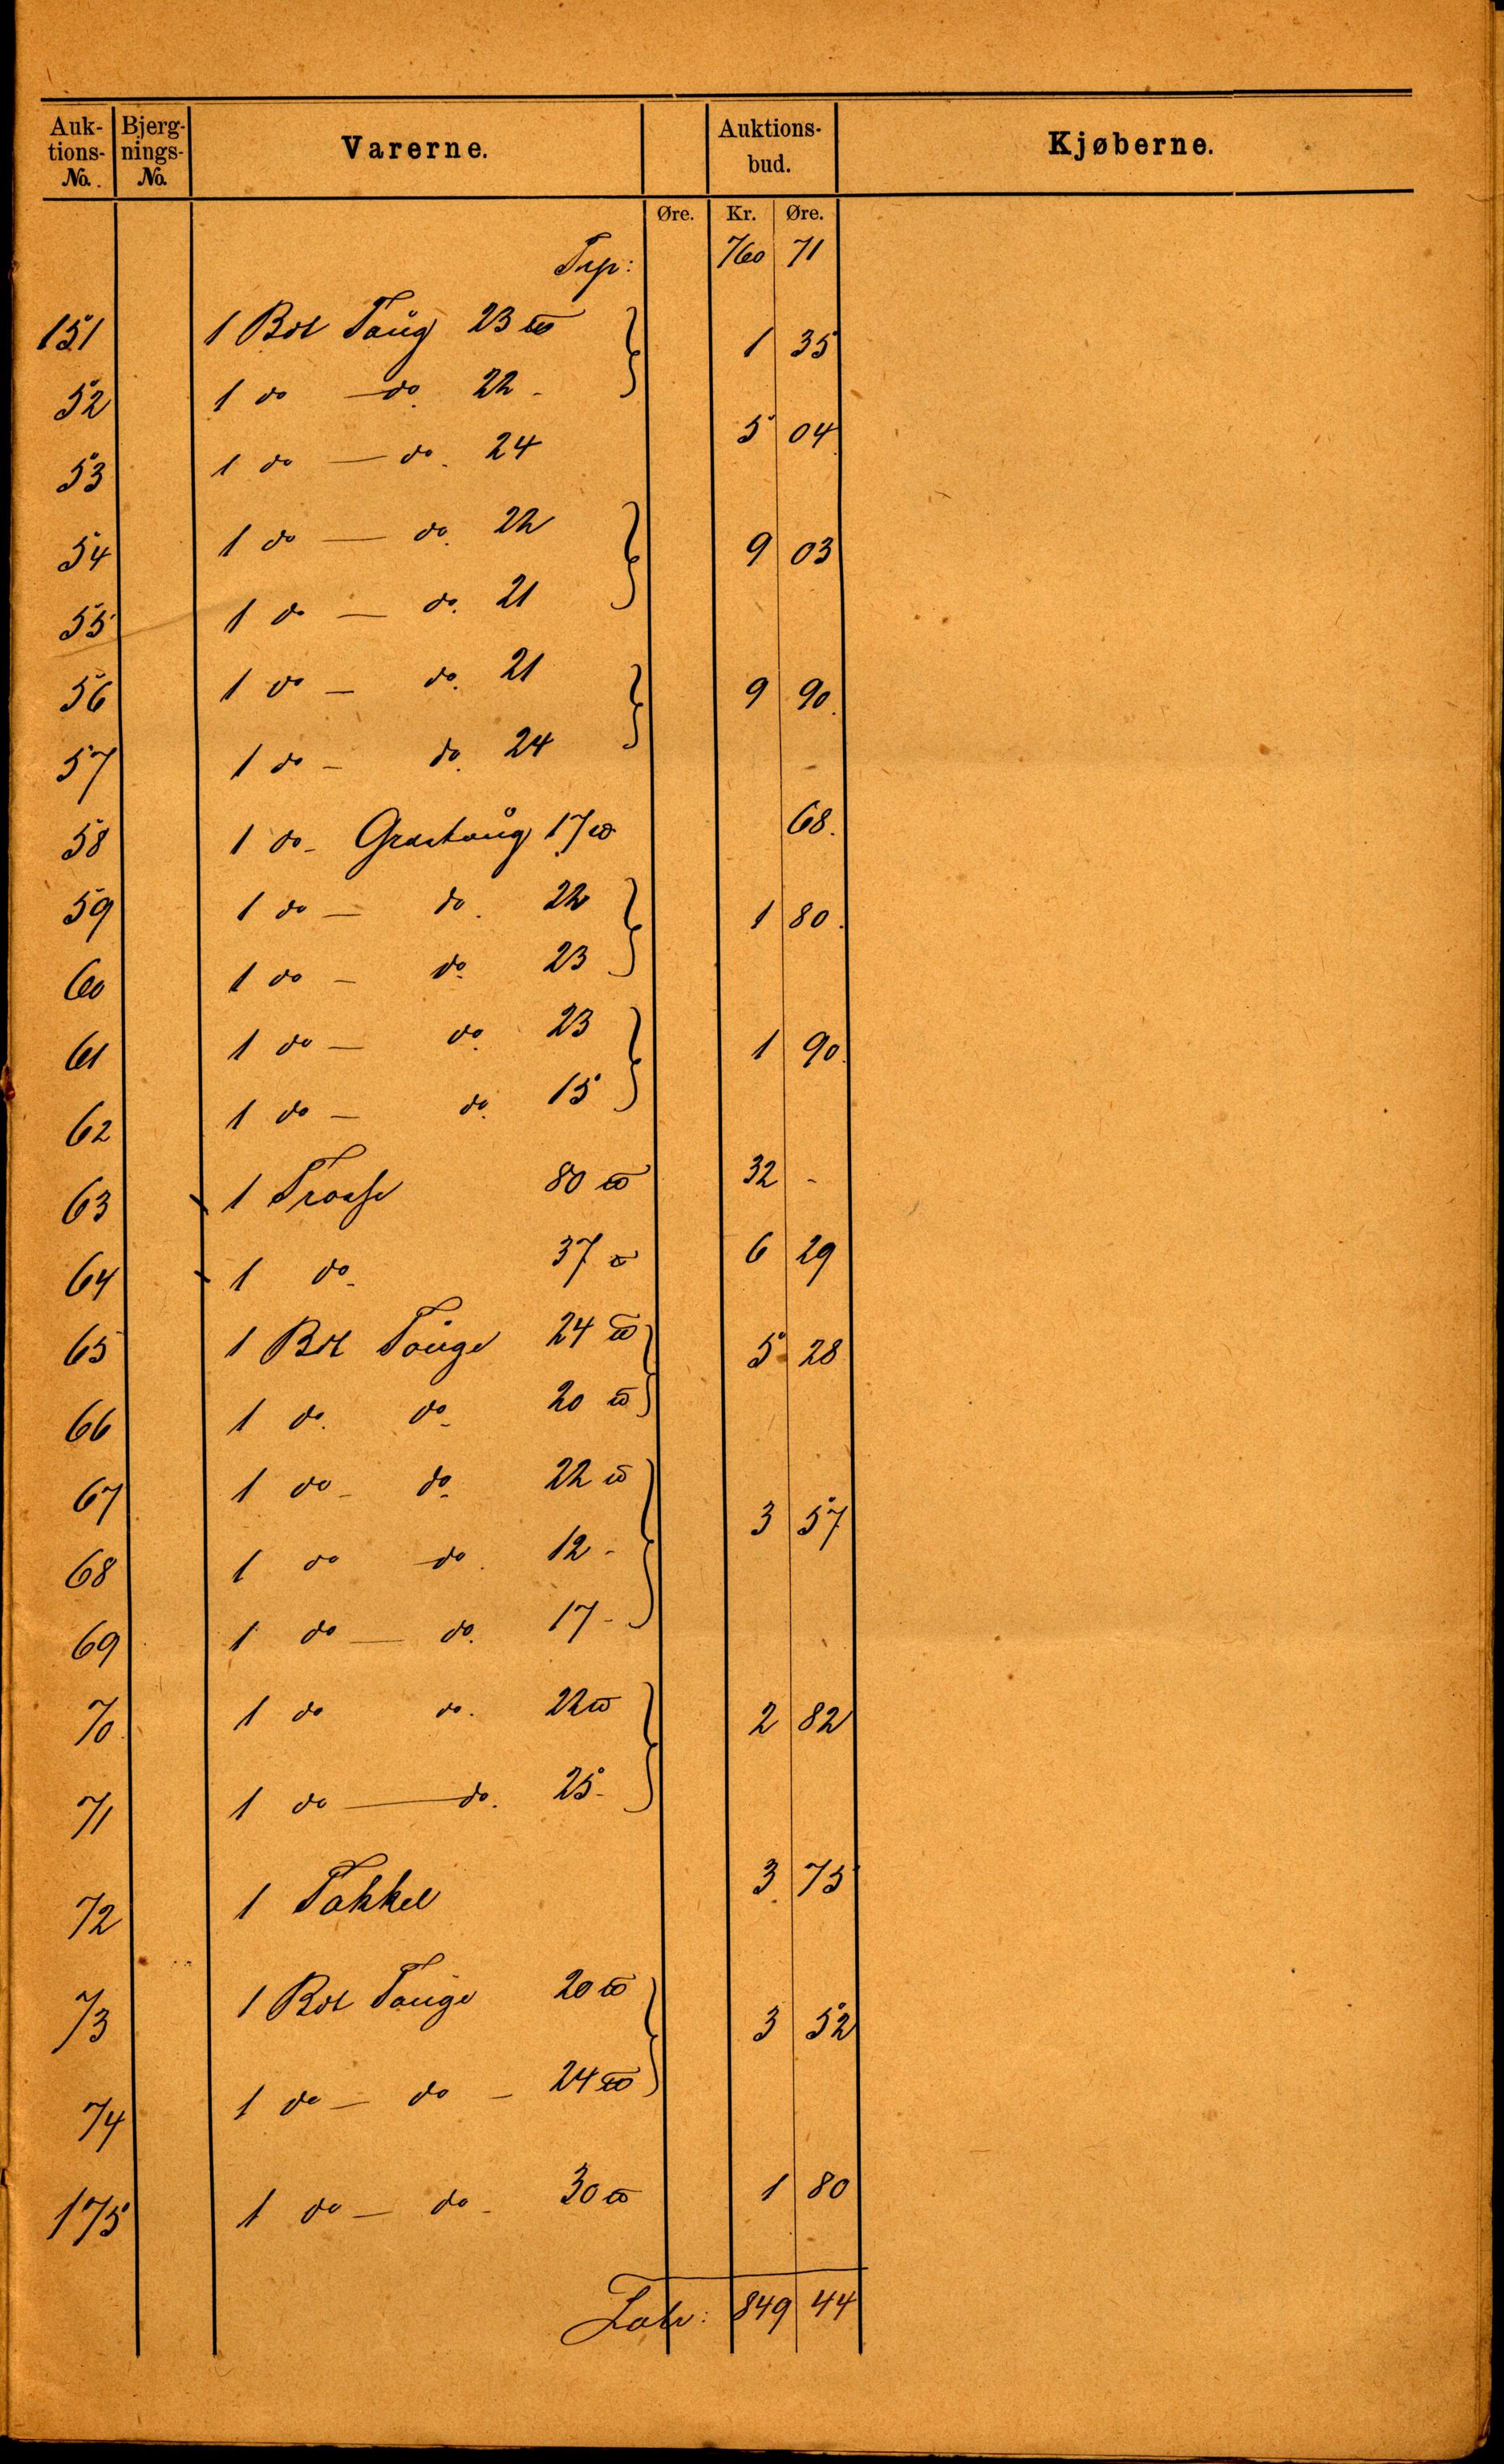 Auktions-No. Bjergnings-No. Varerne. Auktions-bud. Kjøberne.
Øre. Kr. Øre.
Trp: 760 71
151 1 Bdt Taug 23 ℔ 1 35
52 1 do do. 22 -
53 1 do — do. 24 5 04
54 1 do — do. 22 9 03
55 1 do — do. 21
56 1 do — do. 21 9 90.
57 1 do — do. 24
58 1 do - Græstaug 17 ℔ 68.
59 1 do — do. 22 1 80.
60 1 do — do. 23
61 1 do — do. 23 1 90.
62 1 do — do. 15
63 1 Trosse 80 ℔ 32 -
64 1 do. 37 ℔ 6 29
65 1 Bdt Touge 24 ℔ 5 28
66 1 do. do. 20 ℔
67 1 do - do. 22 ℔ 3 57
68 1 do do. 12 -
69 1 do — do. 17 -
70 1 do do. 22 ℔ 2 82
71 1 do — do. 25 -
72 1 Takkel 3 75
73 1 Bdt Touge 20 ℔ 3 52
74 1 do — do — 24 ℔
175 1 do — do - 30 ℔ 1 80
Latr: 849 44